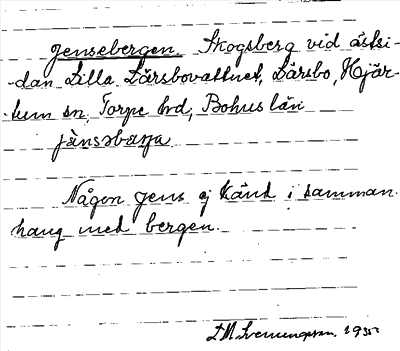 Jensebergen. Skogsberg vid östsi-
-dan Lilla Lärsbovattnet, Lärsbo, Hjär-
-tum sn, Torpe hd, Bohus län
jänsəbærja
Någon Jens ej känd i samman-
hang med bergen.